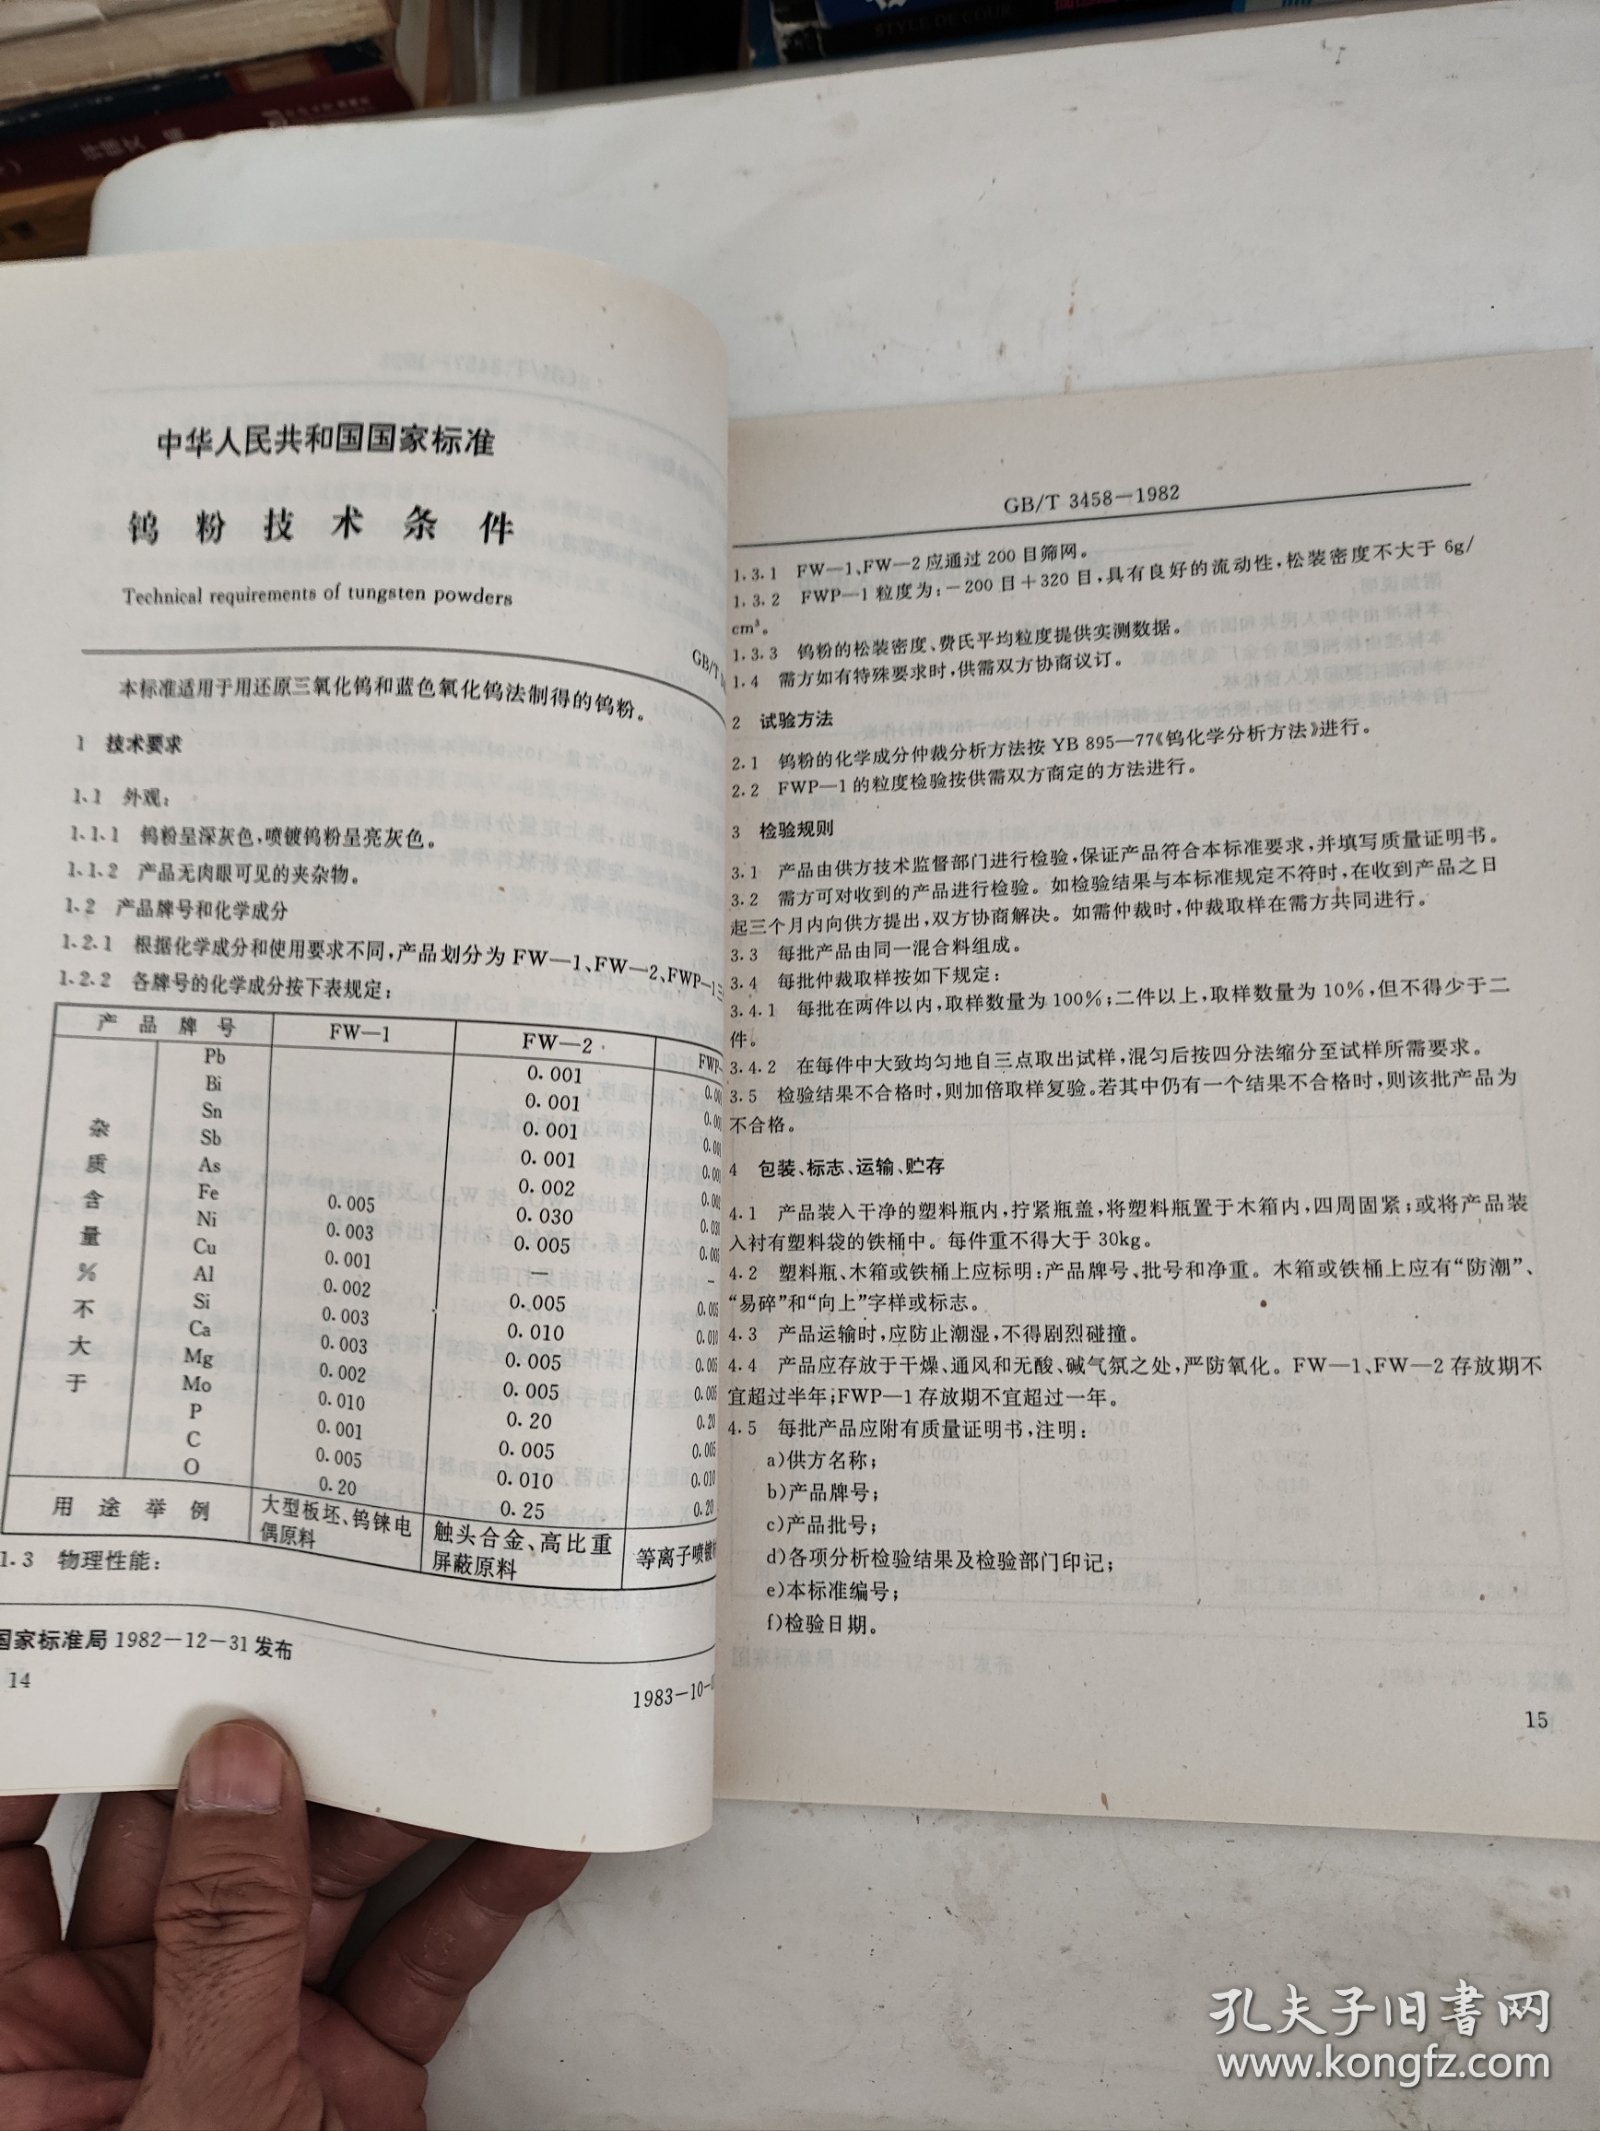 STYLE DE COUR
中华人民共和国国家标准
钨粉技术条件
Technical requirements of tungsten powders
GB/T
本标准适用于用还原三氧化钨和蓝色氧化钨法制得的钨粉。
1 技术要求
1.1 外观:
1.1.1 钨粉呈深灰色,喷镀钨粉呈亮灰色。
1.1.2 产品无肉眼可见的夹杂物。
1.2 产品牌号和化学成分
1.2.1 根据化学成分和使用要求不同,产品划分为 FW—1、FW—2、FWP—1三
1.2.2 各牌号的化学成分按下表规定:
产品牌号 FW—1 FW—2 FWP
杂质含量%不大于
Pb 0.001 0.00
Bi 0.001 0.00
Sn 0.001 0.001
Sb 0.001 0.001
As 0.002 0.002
Fe 0.005 0.030 0.030
Ni 0.003 0.005 0.005
Cu 0.001 — —
Al 0.002 0.005 0.005
Si 0.003 0.010 0.010
Ca 0.003 0.005 0.005
Mg 0.002 0.005 0.005
Mo 0.010 0.20 0.20
P 0.001 0.005 0.005
C 0.005 0.010 0.010
O 0.20 0.25 0.20
用途举例 大型板坯、钨铼电偶原料 触头合金、高比重屏蔽原料 等离子喷镀
1.3 物理性能:
国家标准局1982-12-31发布
1983-10-0
14
GB/T 3458—1982
1.3.1 FW—1、FW—2应通过200目筛网。
1.3.2 FWP—1粒度为:-200目+320目,具有良好的流动性,松装密度不大于6g/
cm³。
1.3.3 钨粉的松装密度、费氏平均粒度提供实测数据。
1.4 需方如有特殊要求时,供需双方协商议订。
2 试验方法
2.1 钨粉的化学成分仲裁分析方法按YB 895—77《钨化学分析方法》进行。
2.2 FWP—1的粒度检验按供需双方商定的方法进行。
3 检验规则
3.1 产品由供方技术监督部门进行检验,保证产品符合本标准要求,并填写质量证明书。
3.2 需方可对收到的产品进行检验。如检验结果与本标准规定不符时,在收到产品之日
起三个月内向供方提出,双方协商解决。如需仲裁时,仲裁取样在需方共同进行。
3.3 每批产品由同一混合料组成。
3.4 每批仲裁取样按如下规定:
3.4.1 每批在两件以内,取样数量为100%;二件以上,取样数量为10%,但不得少于二
件。
3.4.2 在每件中大致均匀地自三点取出试样,混匀后按四分法缩分至试样所需要求。
3.5 检验结果不合格时,则加倍取样复验。若其中仍有一个结果不合格时,则该批产品为
不合格。
4 包装、标志、运输、贮存
4.1 产品装入干净的塑料瓶内,拧紧瓶盖,将塑料瓶置于木箱内,四周固紧;或将产品装
入衬有塑料袋的铁桶中。每件重不得大于30kg。
4.2 塑料瓶、木箱或铁桶上应标明:产品牌号、批号和净重。木箱或铁桶上应有“防潮”、
“易碎”和“向上”字样或标志。
4.3 产品运输时,应防止潮湿,不得剧烈碰撞。
4.4 产品应存放于干燥、通风和无酸、碱气氛之处,严防氧化。FW—1、FW—2存放期不
宜超过半年;FWP—1存放期不宜超过一年。
4.5 每批产品应附有质量证明书,注明:
a)供方名称;
b)产品牌号;
c)产品批号;
d)各项分析检验结果及检验部门印记;
e)本标准编号;
f)检验日期。
15
孔夫子旧书网
www.kongfz.com